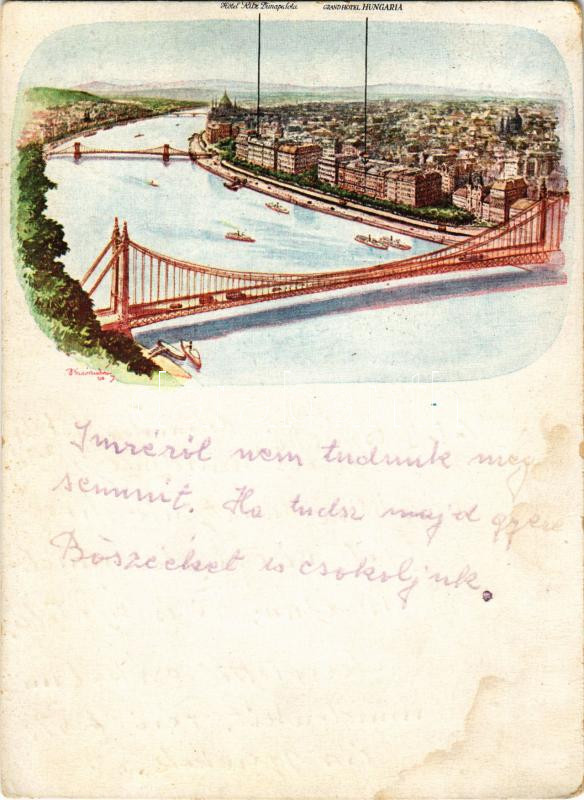 Hotel Ritz Dunapalota GRAND HOTEL HUNGARIA
Imréről nem tudunk meg
semmit. Ha tudsz majd gyere
Böszééket is csokoljuk.